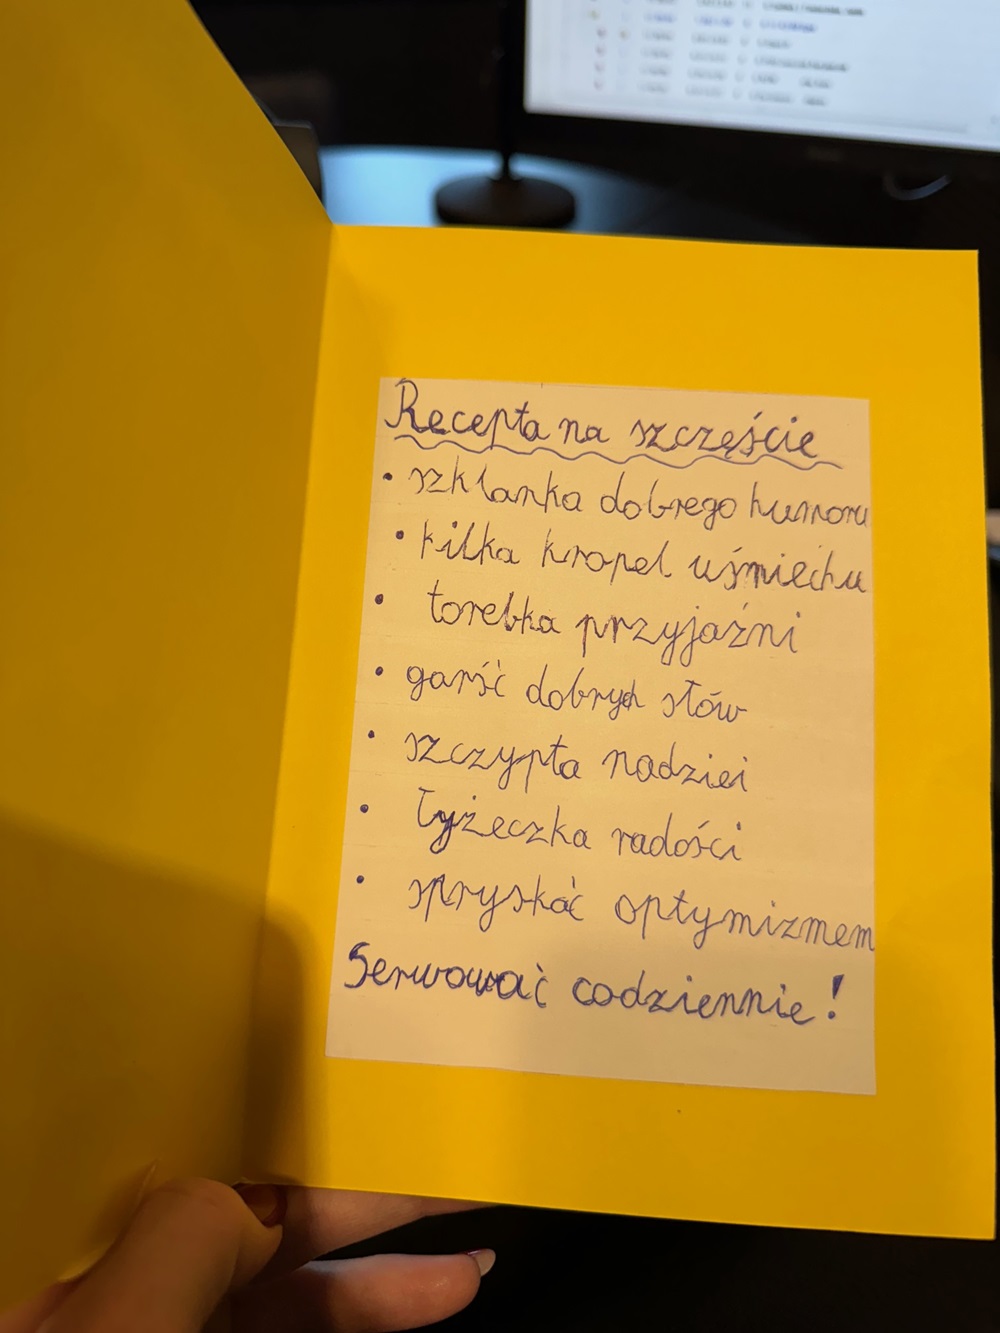 Recepta na szczęście
• szklanka dobrego humoru
• kilka kropel uśmiechu
• torebka przyjaźni
• garść dobrych słów
• szczypta nadziei
• łyżeczka radości
• spryskać optymizmem
Serwować codziennie!